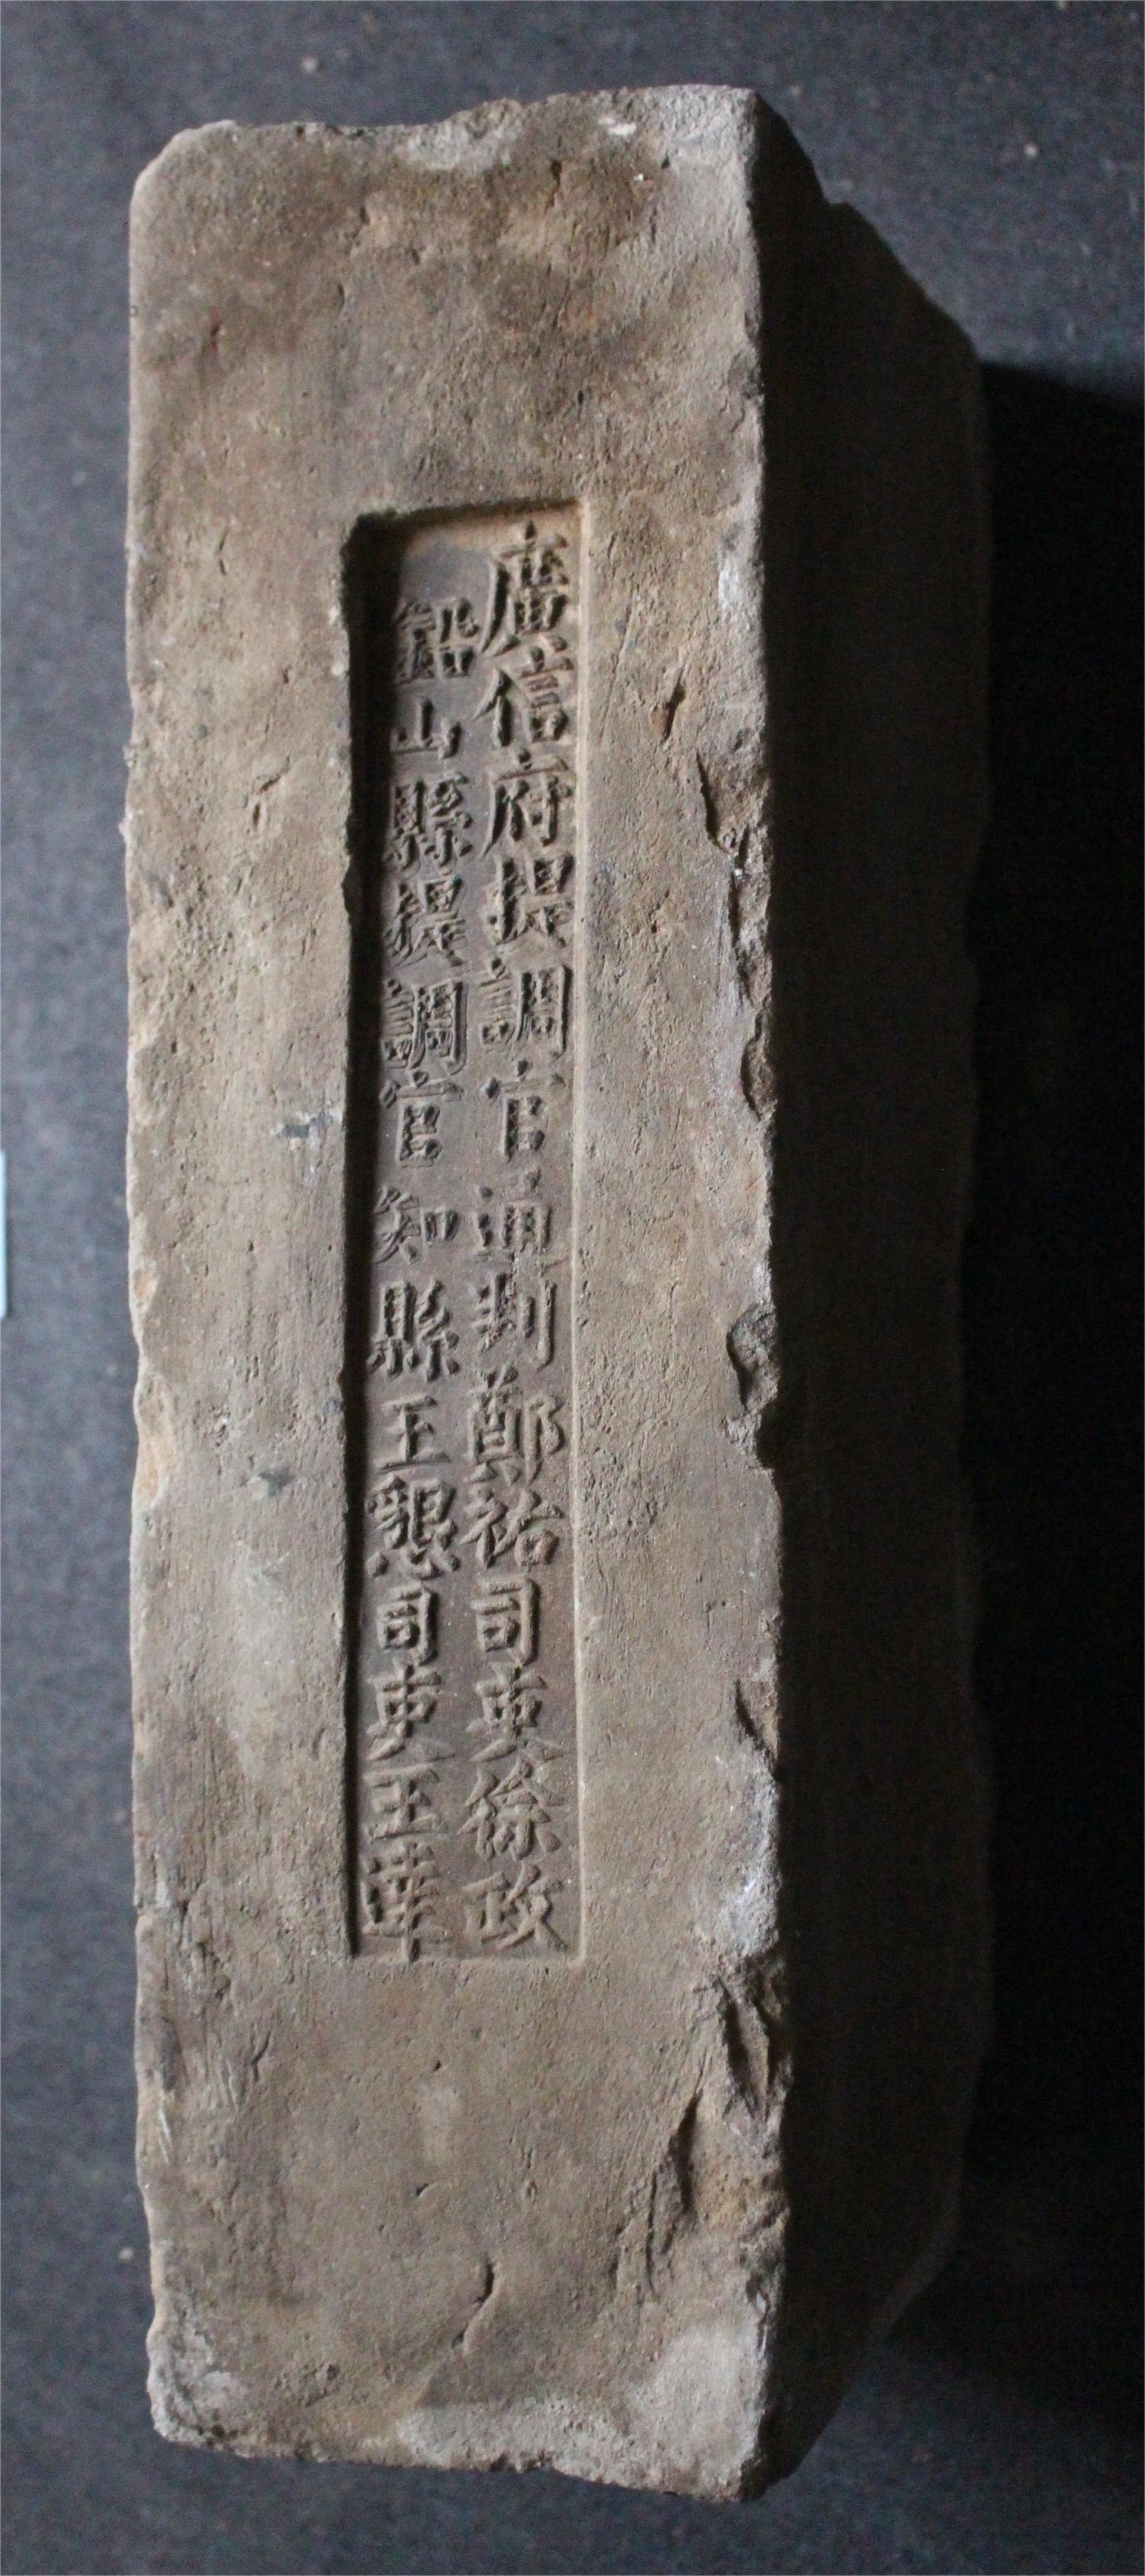 廣信府提調官通判鄭祐司吏徐政
鉛山縣提調官知縣王懇司吏王華